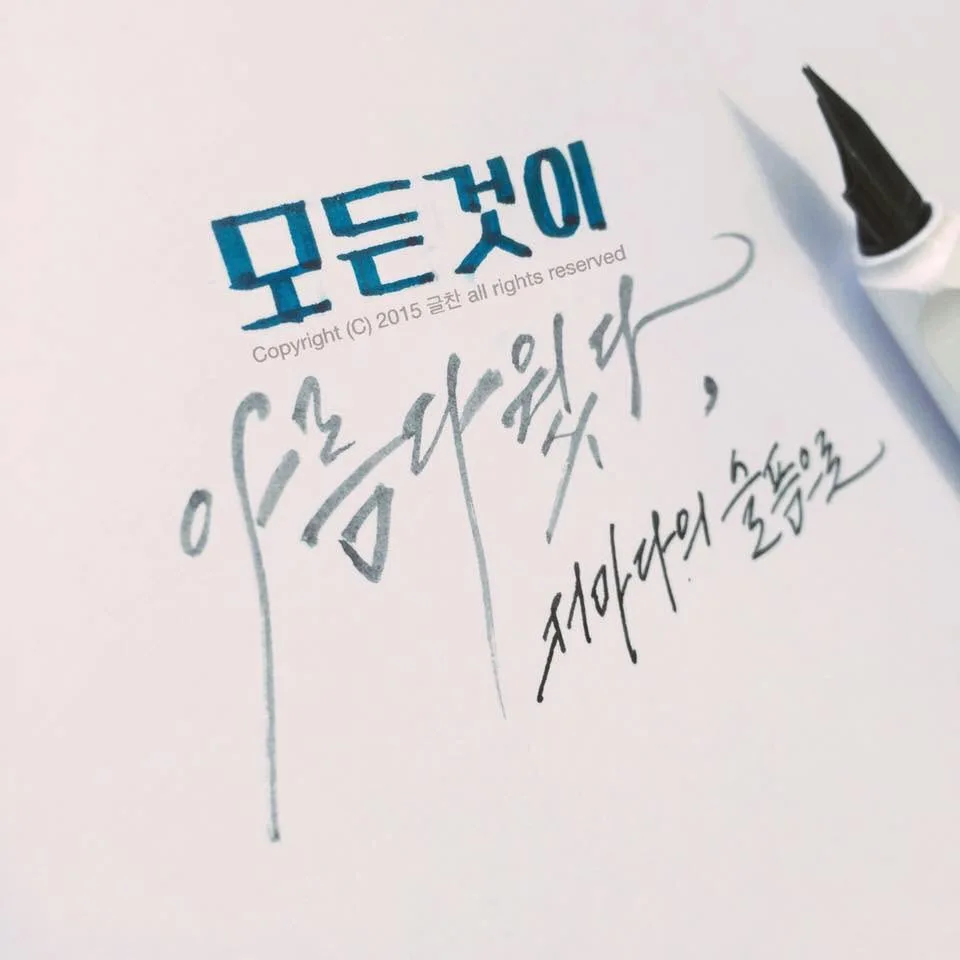 모든것이
Copyright (C) 2015 글찬 all rights reserved
아름다웠다,
저마다의 슬픔으로